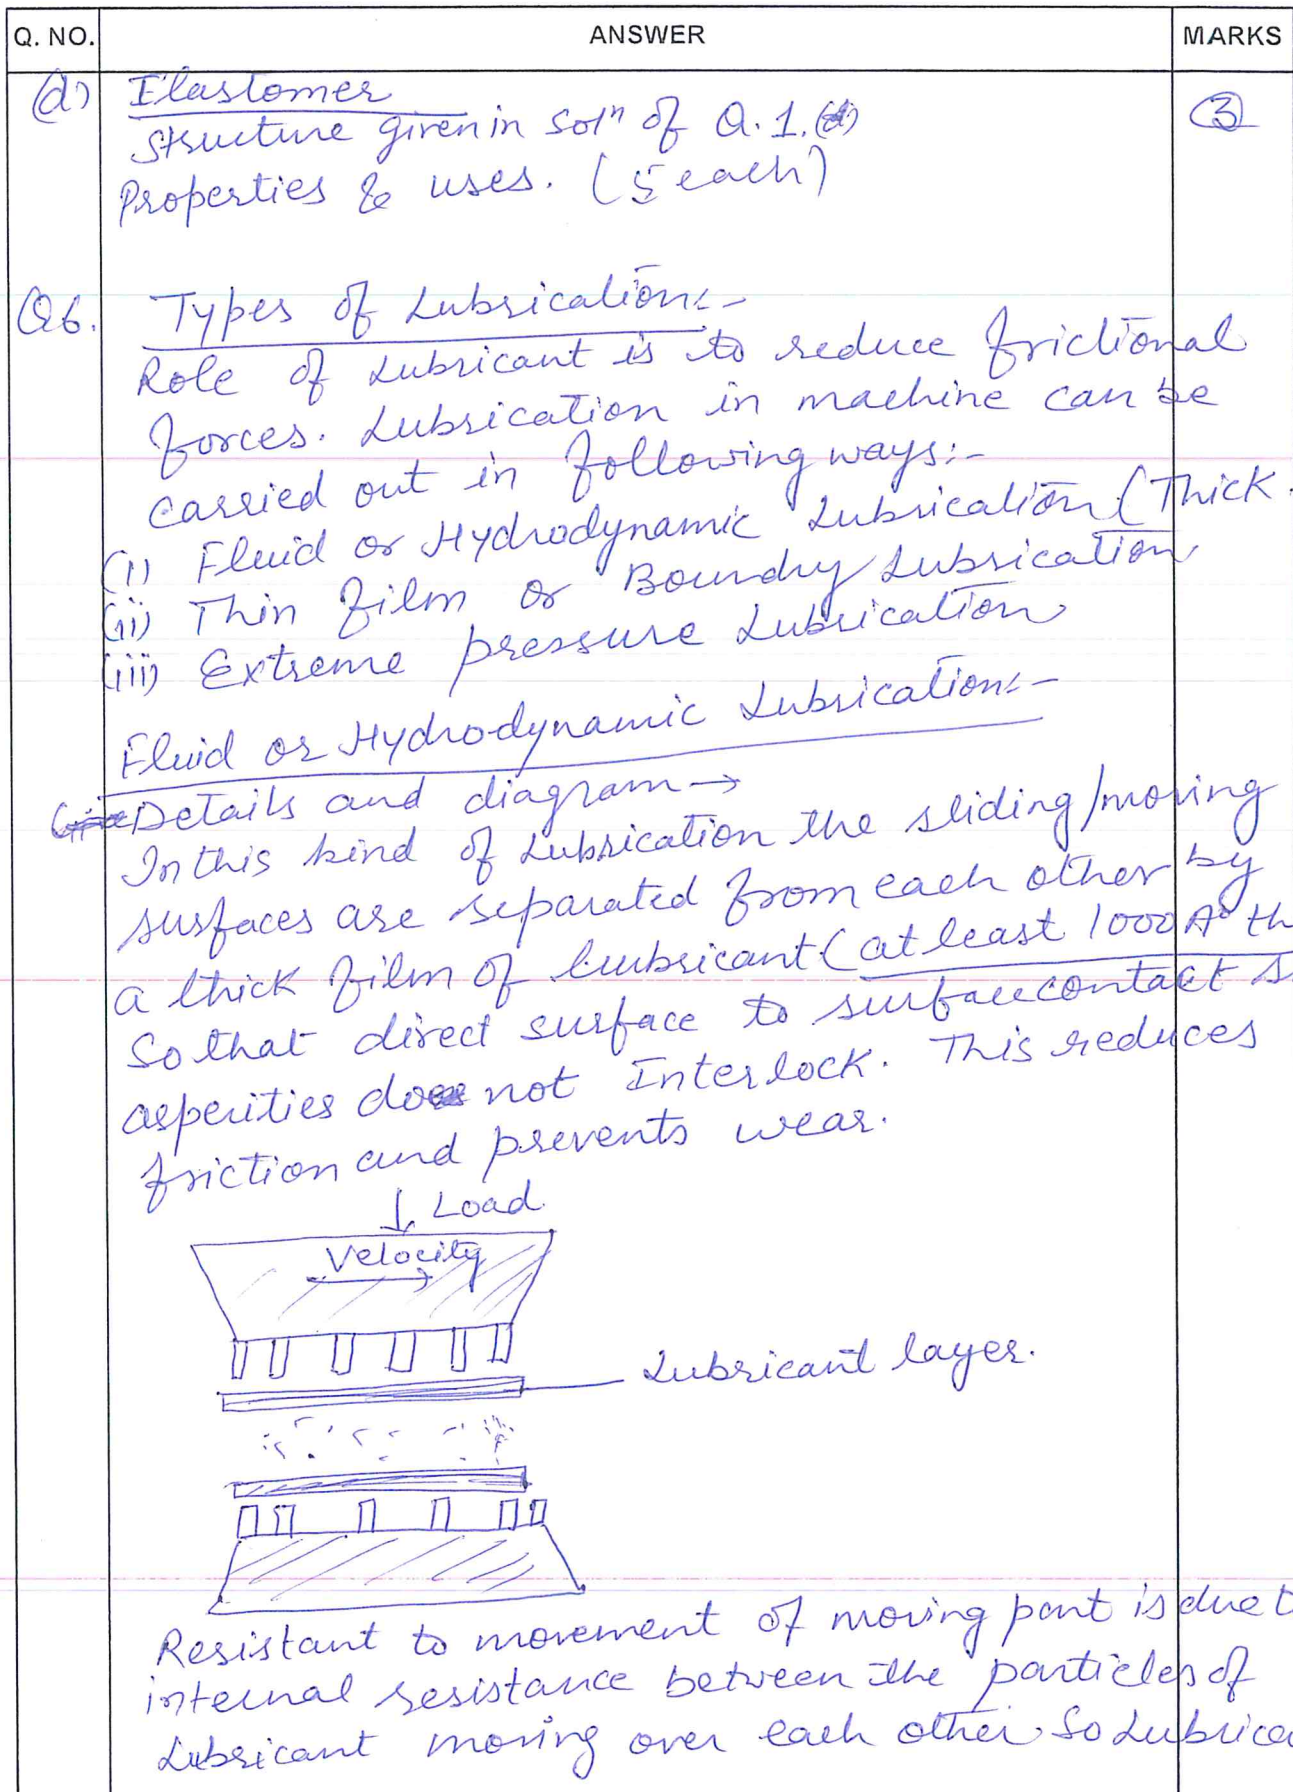 Q. NO. ANSWER MARKS
(d) Elastomer (3)
Structure given in solⁿ of Q.1.(d)
Properties & uses. (5 each)
Q6. Types of Lubrication:-
Role of Lubricant is to reduce frictional
forces. Lubrication in machine can be
carried out in following ways:-
(i) Fluid or Hydrodynamic Lubrication (Thick
(ii) Thin film or Boundry Lubrication
(iii) Extreme pressure Lubrication
Fluid or Hydrodynamic Lubrication:-
Details and diagram →
In this kind of Lubrication the sliding/moving
surfaces are separated from each other by
a thick film of lubricant (at least 1000 A° th
So that direct surface to surface contact s
asperities do not Interlock. This reduces
friction and prevents wear.
↓ Load
Velocity
Lubricant layer.
Resistant to movement of moving part is due t
internal resistance between the particles of
Lubricant moving over each other. So Lubrica